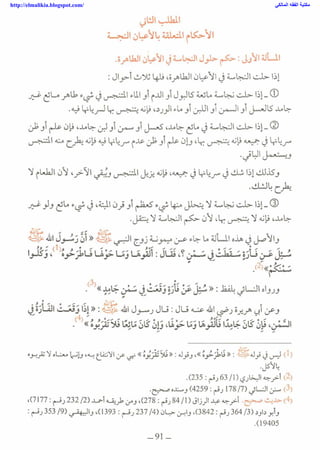 http://elmalikia.blogspot.com/
مكتبة الفقه المالكي
المطلب الثاني
الأحكام المتعلقة بالأعيان النجسة
المسألة الأولى: حكم حلول النجاسة في الأعيان الطاهرة.
إذا حلت النجاسة في الأعيان الطاهرة، فلها ثلاث أحوال:
1 ـ إذا حلت نجاسة مائعة كالبول أو الدم أو الماء المتنجس في شيء طاهر مائع غير
جامد كالعسل أو السمن أو اللبن أو ماء الورد، فإنه يتنجس بها لسريانها فيه.
2 ـ إذا حلت نجاسة في مائع جامد، كعسل أو سمن أو لبن جامد، فإن علم أو ظن
سريانها في جميعه فإنه يتنجس بها، وإن علم أو ظن عدم سريانها فيه فإنه يطرح منه المتنجس
ويستعمل الباقي.
وكذلك إذا شك في سريانها في جميعه، فإنه يزيل المتنجس ويبقي الآخر، لأن الطعام لا
يطرح بالشك.
3 ـ إذا حلت نجاسة لا يتحلل منها شيء كعظم أو قرن الميتة، في شيء مائع ولو غير
جامد، فإنه لا يتنجس بها، لأن حكم النجاسة لا ينتقل.
والأصل في هذه المسألة ما جاء عن ميمونة زوج النبي ﷺ: «أَنَّ رَسُولَ اللهِ ﷺ
سُئِلَ عَنْ فَأْرَةٍ سَقَطَتْ فِي سَمْنٍ؟ فَقَالَ: أَلْقُوهَا وَمَا حَوْلَهَا فَاطْرَحُوهُ(1)، وَكُلُوا
سَمْنَكُمْ»(2).
ورواه النسائي بلفظ: «سُئِلَ عَنْ فَأْرَةٍ وَقَعَتْ فِي سَمْنٍ جَامِدٍ»(3).
وعن أبي هريرة رضي الله عنه قال: قال رسول الله ﷺ: «إِذَا وَقَعَتِ الْفَأْرَةُ فِي
السَّمْنِ، فَإِنْ كَانَ جَامِدًا فَأَلْقُوهَا وَمَا حَوْلَهَا، وَإِنْ كَانَ مَائِعًا فَلَا تَقْرَبُوهُ»(4).
(1) ليس في قوله ﷺ: «فاطرحوه»، وقوله: «فلا تقربوه» نهي عن الانتفاع به، وإنما معناه لا تقربوه
بالأكل.
(2) أخرجه البخاري (1/ 63 رقم: 235).
(3) سنن النسائي (7/ 178 رقم: 4259) وسنده صحيح.
(4) حديث صحيح. أخرجه عبد الرزاق (1/ 84 رقم: 278)، ومن طريقه أحمد (2/ 232 رقم: 7177)،
وأبو داود (3/ 364 رقم: 3842)، وابن حبان (4/ 237 رقم: 1393)، والبيهقي (9/ 353 رقم:
19405).
ـ 91 ـ